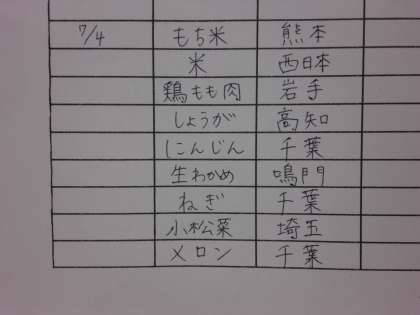 7/4 もち米 熊本
米 西日本
鶏もも肉 岩手
しょうが 高知
にんじん 千葉
生わかめ 鳴門
ねぎ 千葉
小松菜 埼玉
メロン 千葉